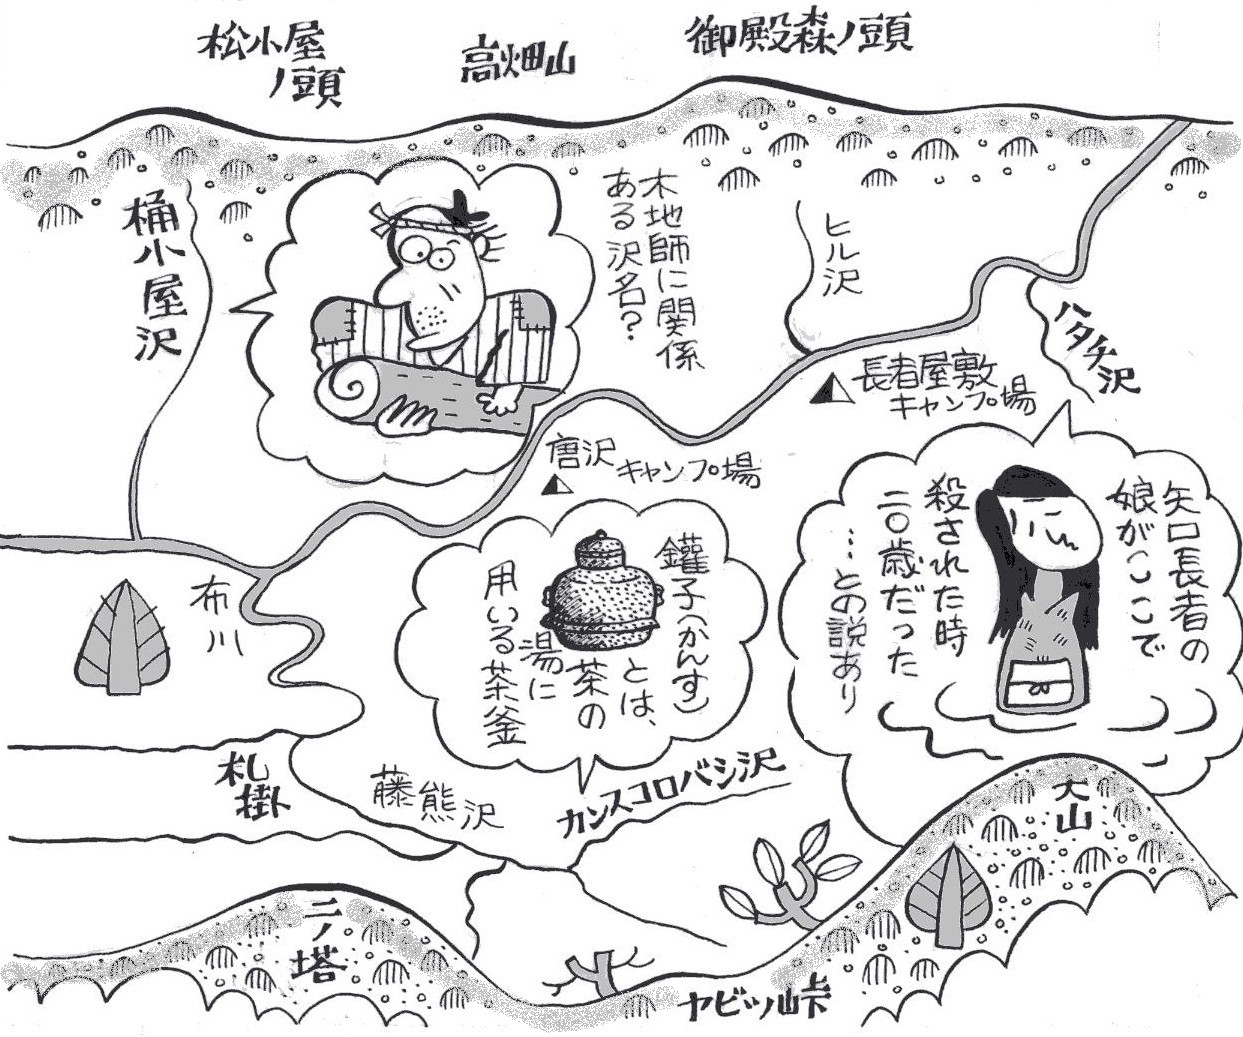 松小屋
ノ頭
高畑山
御殿森ノ頭
桶小屋沢
木地師に関係
ある沢名?
ヒル沢
ハタチ沢
長者屋敷
キャンプ場
唐沢キャンプ場
矢口長者の
娘がここで
殺された時
二〇歳だった
…との説あり
鑵子(かんす)
とは、
茶の
湯に
用いる茶釜
布川
札掛
藤熊沢
カンスコロバシ沢
大山
二ノ塔
ヤビツ峠